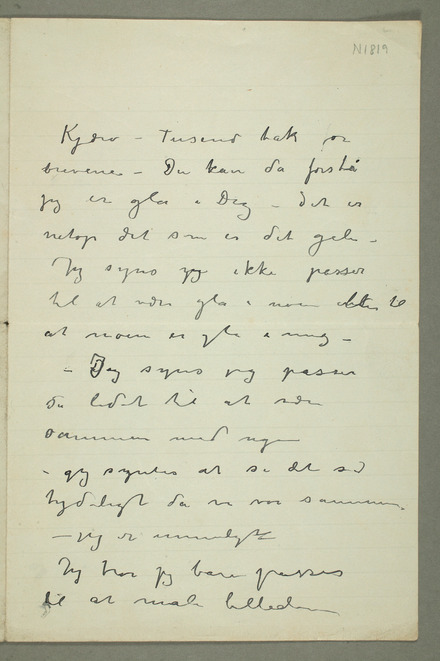 N1819
Kjære – Tusend tak for
brevene – Du kan da forstå
jeg er gla i Dig – det er
netop det som er det gale –
Jeg synes jeg ikke passer
til at være gla i noen eller til
at noen er gla i mig –
– Jeg synes jeg passer
så lidet til at være
sammen med
– jeg syntes at se det så
tydeligt da vi var sammen.
– jeg er umuligt
Jeg tror jeg bare passer
til at male billeder